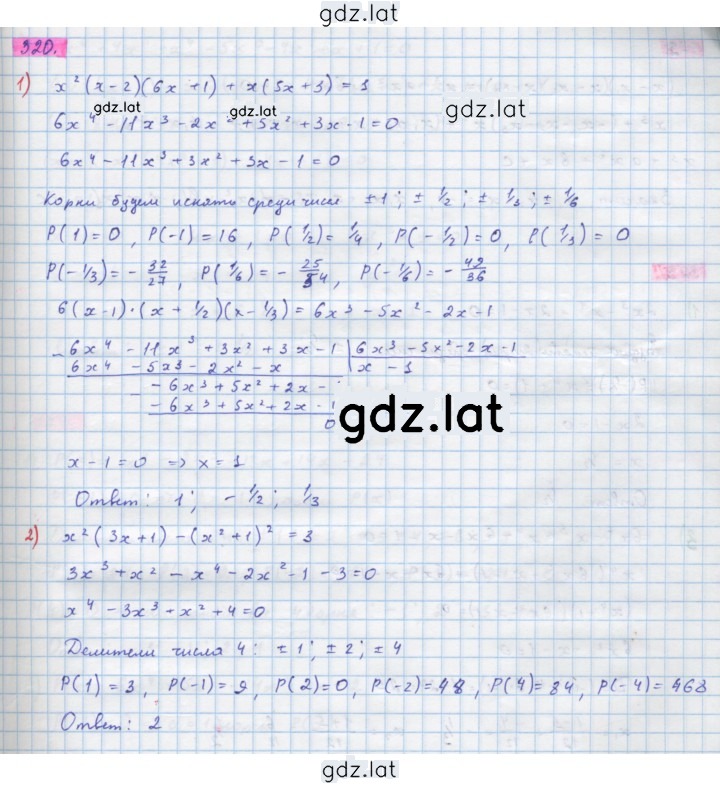 gdz.lat
320.
1) x² (x - 2)(6x + 1) + x(5x + 3) = 1
gdz.lat gdz.lat
6x⁴ - 11x³ - 2x² + 5x² + 3x - 1 = 0
6x⁴ - 11x³ + 3x² + 3x - 1 = 0
Корни будем искать среди чисел ±1; ± 1/2; ± 1/3; ± 1/6
P(1) = 0, P(-1) = 16, P(1/2) = 1/4, P(-1/2) = 0, P(1/3) = 0
P(-1/3) = - 32/27, P(1/6) = - 25/54, P(-1/6) = - 42/36
6(x-1)·(x + 1/2)(x - 1/3) = 6x³ - 5x² - 2x - 1
- 6x⁴ - 11x³ + 3x² + 3x - 1 | 6x³ - 5x² - 2x - 1
6x⁴ - 5x³ - 2x² - x | x - 1
- - 6x³ + 5x² + 2x -
- 6x³ + 5x² + 2x - 1
0
gdz.lat
x - 1 = 0 ⇒ x = 1
Ответ: 1; - 1/2; 1/3
2) x² (3x + 1) - (x² + 1)² = 3
3x³ + x² - x⁴ - 2x² - 1 - 3 = 0
x⁴ - 3x³ + x² + 4 = 0
Делители числа 4: ±1; ±2; ±4
P(1) = 3, P(-1) = 9, P(2) = 0, P(-2) = 48, P(4) = 84, P(-4) = 468
Ответ: 2
gdz.lat